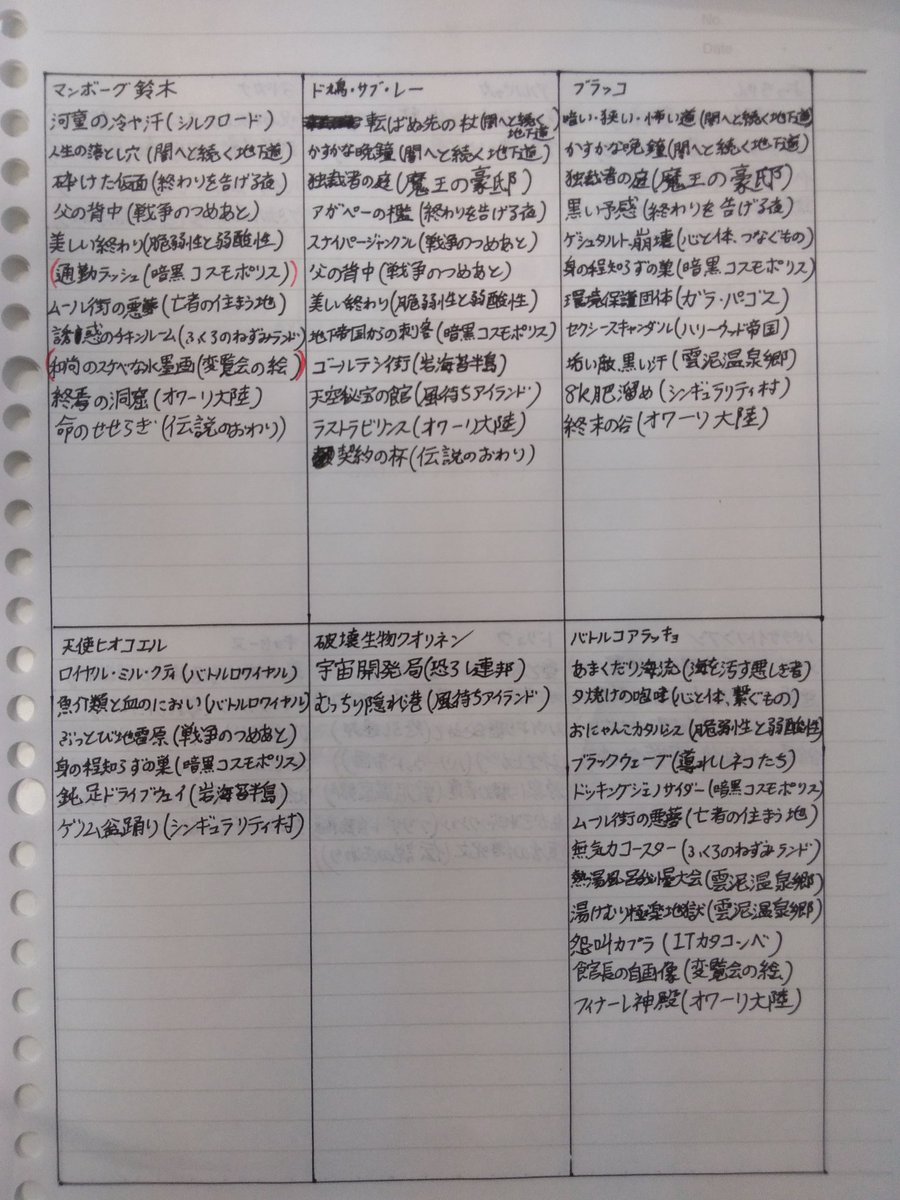 No.
Date
マンボーグ鈴木
河童の冷や汗(シルクロード)
人生の落とし穴(闇へと続く地下道)
砕けた仮面(終わりを告げる夜)
父の背中(戦争のつめあと)
美しい終わり(脆弱性と弱酸性)
(通勤ラッシュ(暗黒コスモポリス))
ムール街の悪夢(亡者の住まう地)
誘惑のチキンルーム(ふくろのねずみランド)
(和尚のスケベな水墨画(変覧会の絵))
終焉の洞窟(オワーリ大陸)
命のせせらぎ(伝説のおわり)
ド鳩・サブ・レー
転ばぬ先の杖(闇へと続く地下道)
かすかな晩鐘(闇へと続く地下道)
独裁者の庭(魔王の豪邸)
アガペーの檻(終わりを告げる夜)
スナイパージャングル(戦争のつめあと)
父の背中(戦争のつめあと)
美しい終わり(脆弱性と弱酸性)
地下帝国からの刺客(暗黒コスモポリス)
ゴールテシ街(岩海苔半島)
天空秘宝の館(風待ちアイランド)
ラストラビリンス(オワーリ大陸)
契約の杯(伝説のおわり)
ブラッコ
暗い・狭い・怖い道(闇へと続く地下道)
かすかな晩鐘(闇へと続く地下道)
独裁者の庭(魔王の豪邸)
黒い予感(終わりを告げる夜)
ゲシュタルト崩壊(心と体、つなぐもの)
身の程知らずの巣(暗黒コスモポリス)
環境保護団体(ガラ・パゴス)
セクシースキャンダル(ハリーウッド帝国)
垢い敵、黒い汗(雲泥温泉郷)
8K肥溜め(シンギュラリティ村)
終末の谷(オワーリ大陸)
天使ヒオコエル
ロイヤル・ミル・クティ(バトルロワイヤル)
魚介類と血のにおい(バトルロワイヤル)
ぶっとび地雷原(戦争のつめあと)
身の程知らずの巣(暗黒コスモポリス)
鈍足ドライブウェイ(岩海苔半島)
ゲリム盆踊り(シンギュラリティ村)
破壊生物クオリネン
宇宙開発局(恐ろし連邦)
むっちり隠れ港(風待ちアイランド)
バトルコアラッキョ
あまくだり海流(海を汚す悪しき者)
夕焼けの咆哮(心と体、繋ぐもの)
おにゃんこカタルシス(脆弱性と弱酸性)
ブラックウェーブ(導かれしネコたち)
ドッキングジェノサイダー(暗黒コスモポリス)
ムール街の悪夢(亡者の住まう地)
無気力コースター(ふくろのねずみランド)
熱湯風呂我慢大会(雲泥温泉郷)
湯けむり極楽地獄(雲泥温泉郷)
怨叫カプラ(ITカタコンベ)
館長の自画像(変覧会の絵)
フィナーレ神殿(オワーリ大陸)